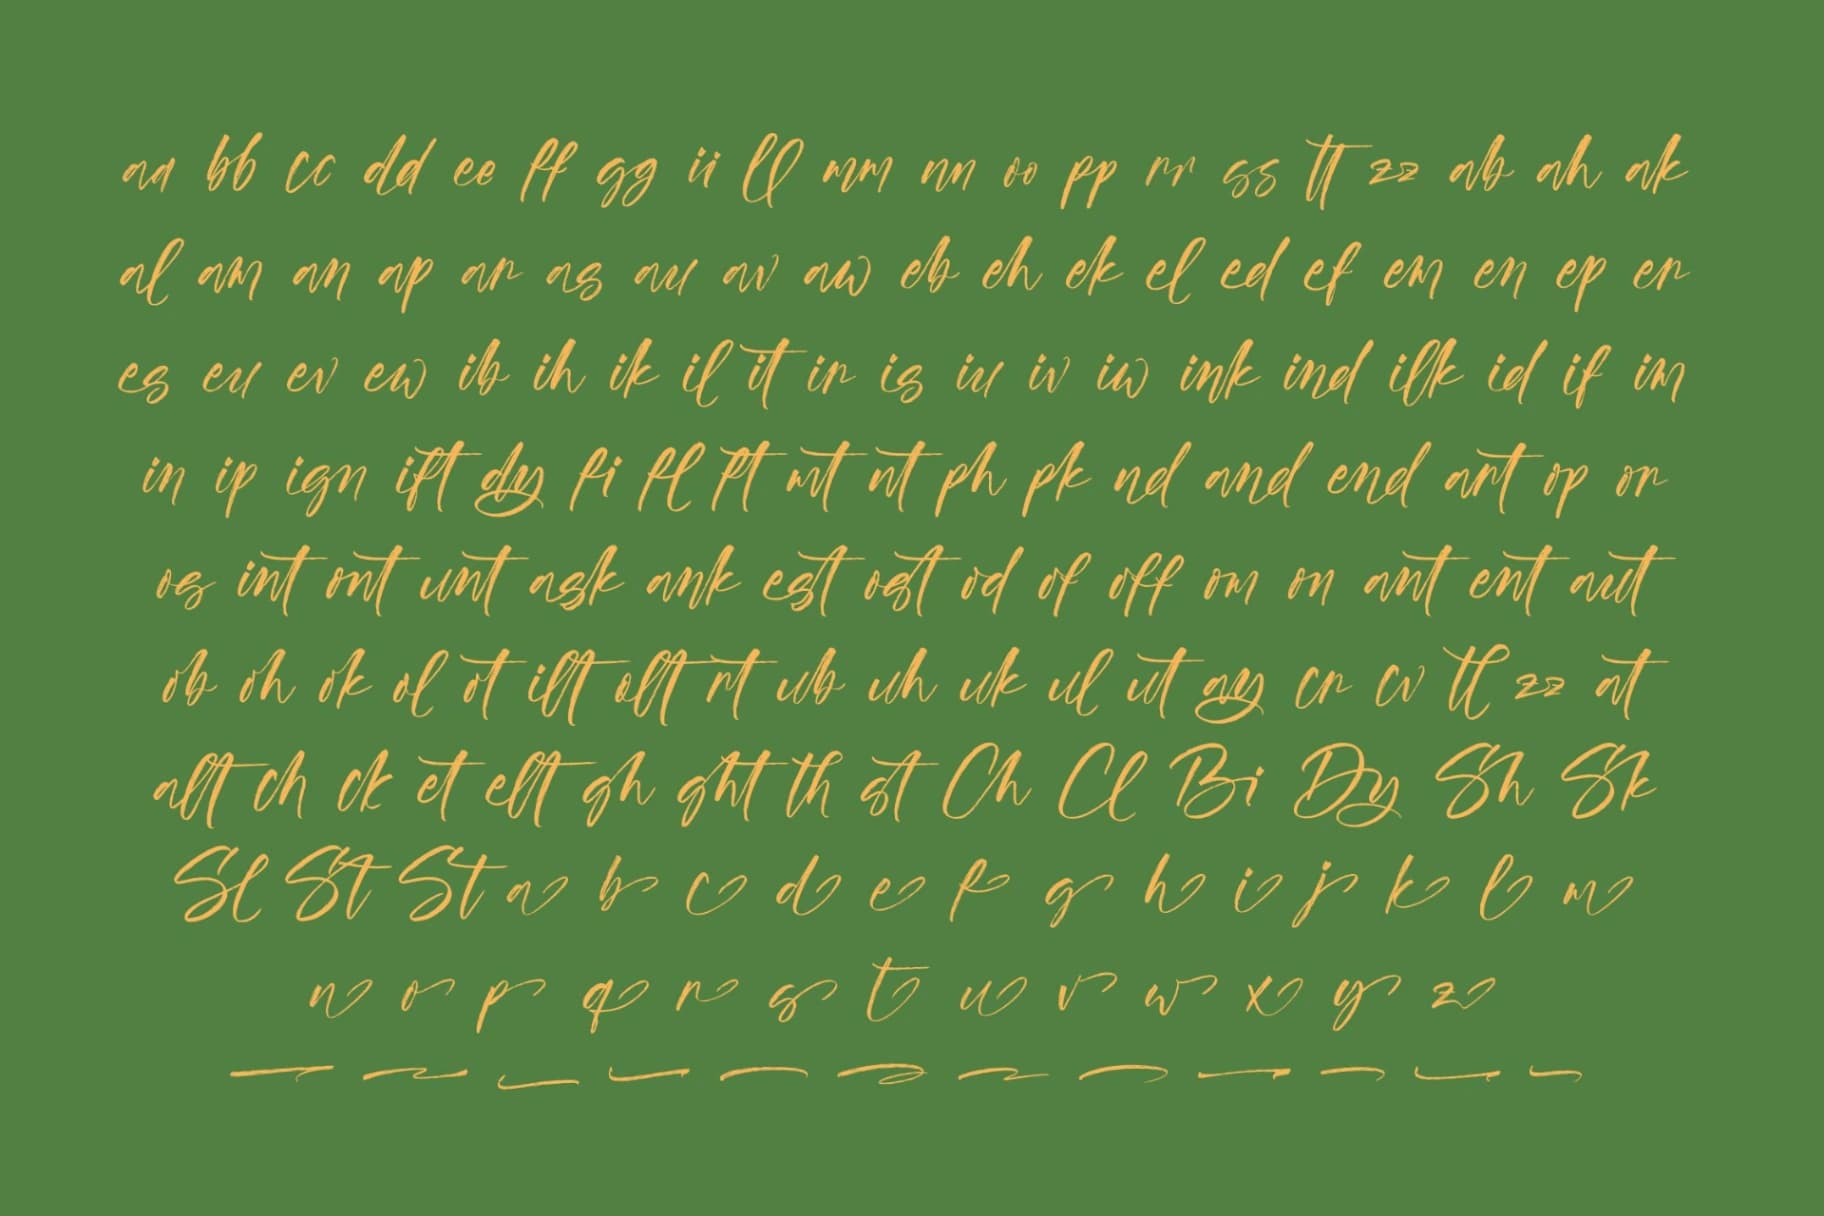 aa bb cc dd ee ff gg ii ll mm nn oo pp rr ss tt zz ab ah ak
al am an ap ar as au av aw eb eh ek el ed ef em en ep er
es eu ev ew ib ih ik il it ir is iu iv iw ink ind ilk id if im
in ip ign ift dy fi fl ft mt nt ph pk nd and end art op or
os int ont unt ask ank est ost od of off om on ant ent aut
ob oh ok ol ot ilt olt rt ub uh uk ul ut ay cr cv tl zz at
alt ch ck et elt gh ght th st Ch Cl Bi Dy Sh Sk
Sl St St a b c d e f g h i j k l m
n o p q r s t u v w x y z